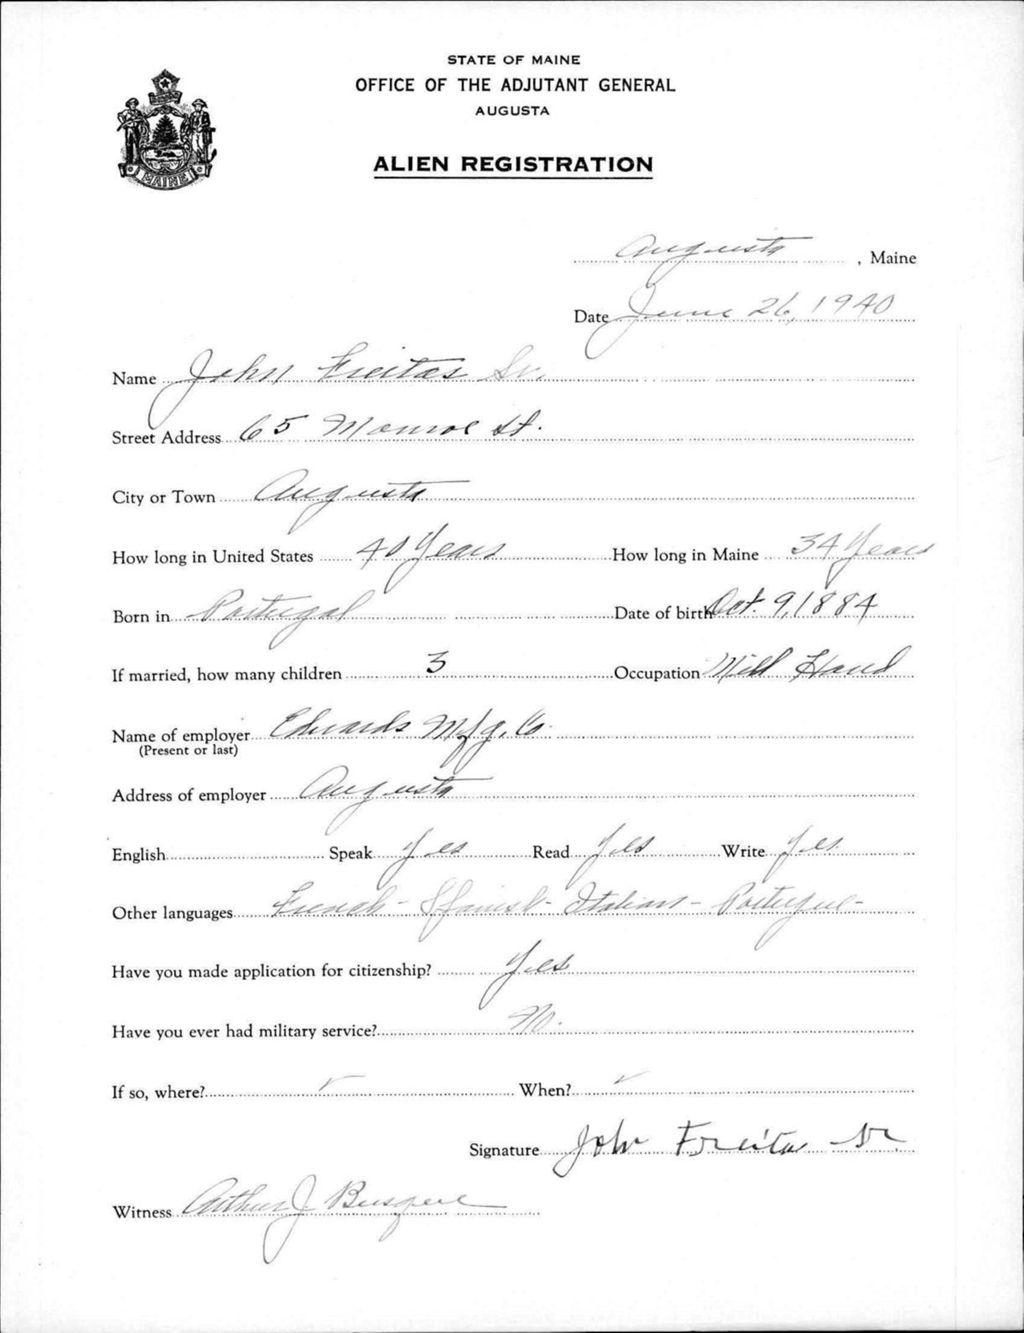 STATE OF MAINE
OFFICE OF THE ADJUTANT GENERAL
AUGUSTA
ALIEN REGISTRATION
MAINE
Augusta, Maine
Date June 26, 1940
Name John Freitas Sr.
Street Address 65 Monroe St.
City or Town Augusta
How long in United States 40 Years How long in Maine 34 Years
Born in Portugal Date of birth Oct. 9, 1884
If married, how many children 3 Occupation Mill Hand
Name of employer Edwards Mfg. Co.
(Present or last)
Address of employer Augusta
English Speak Yes Read Yes Write Yes
Other languages French - Spanish - Italian - Portugue-
Have you made application for citizenship? Yes
Have you ever had military service? No.
If so, where? ✓ When? ✓
Signature John Freitas Sr
Witness Arthur J